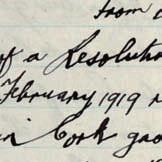 from a
of a Resolution
February 1919
in Cork gao